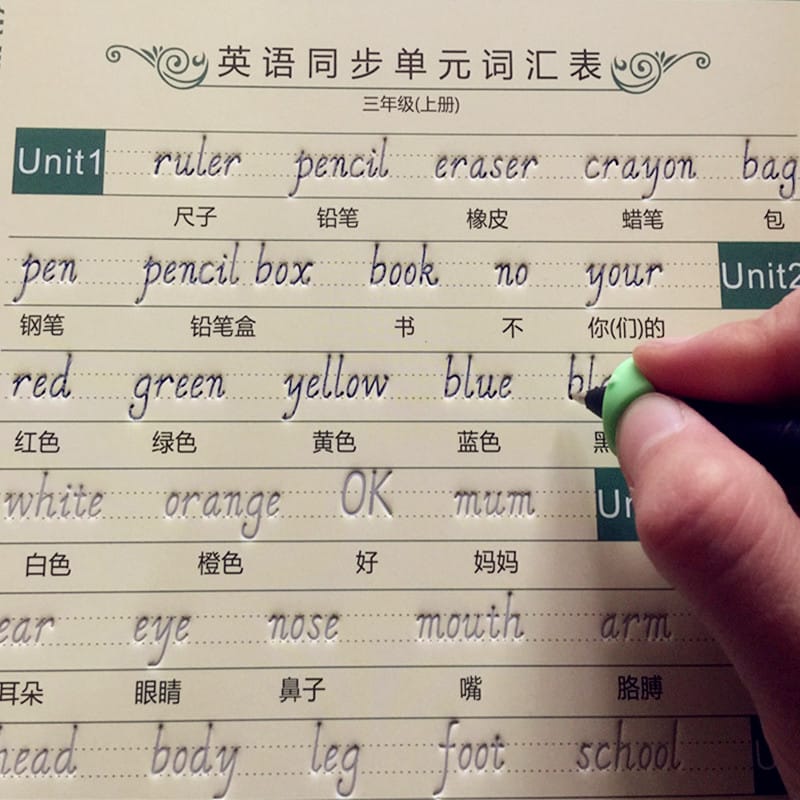 英语同步单元词汇表
三年级(上册)
Unit1 ruler pencil eraser crayon bag
尺子 铅笔 橡皮 蜡笔 包
pen pencil box book no your Unit2
钢笔 铅笔盒 书 不 你(们)的
red green yellow blue
红色 绿色 黄色 蓝色 黑
white orange OK mum
白色 橙色 好 妈妈
ear eye nose mouth arm
耳朵 眼睛 鼻子 嘴 胳膊
head body leg foot school